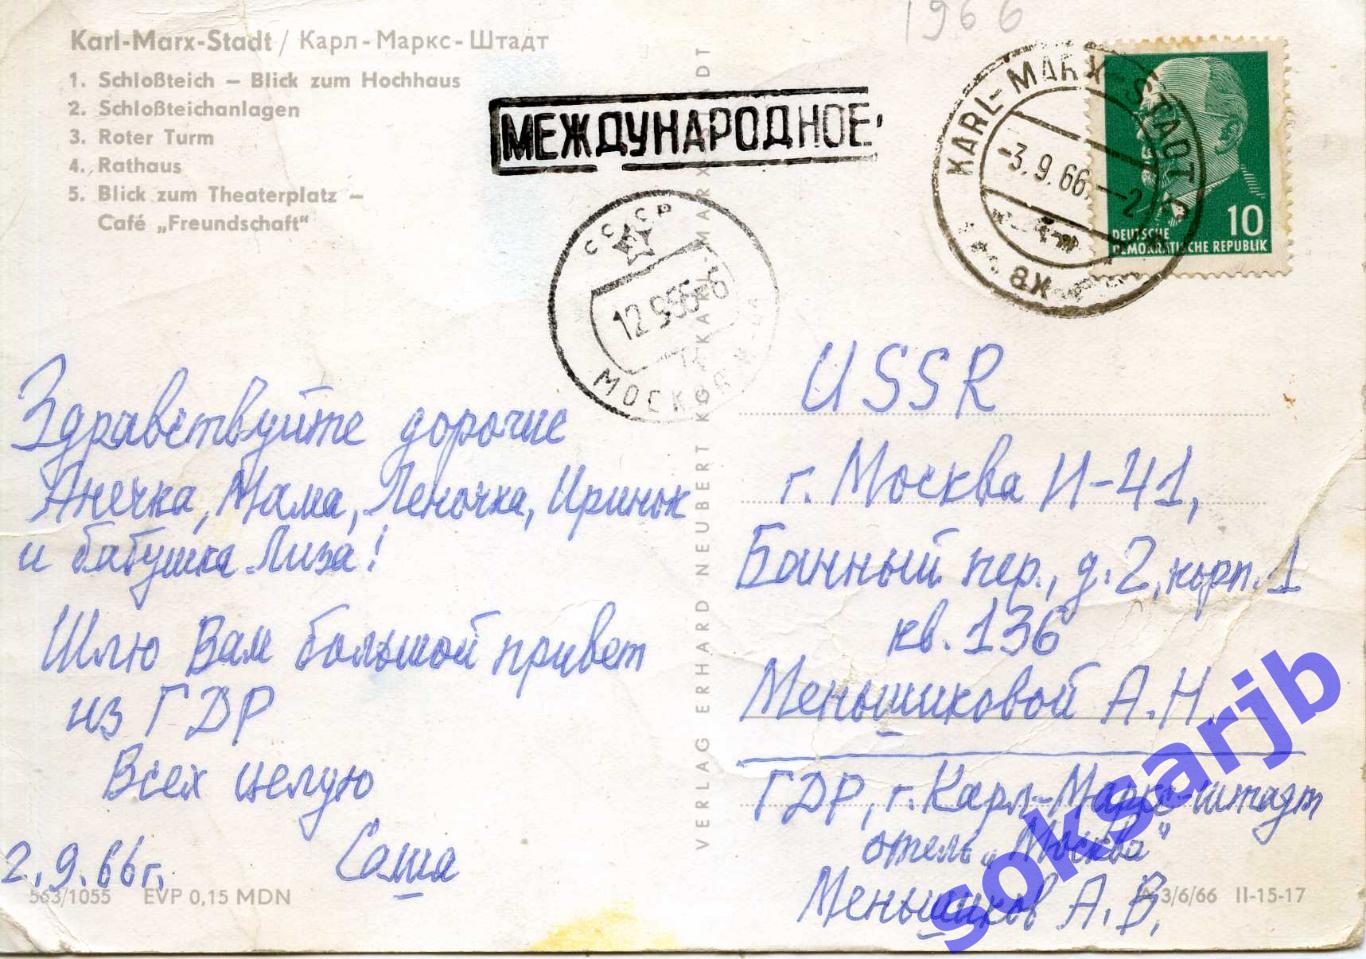 1966
Karl-Marx-Stadt / Карл-Маркс-Штадт
1. Schloßteich – Blick zum Hochhaus
2. Schloßteichanlagen
3. Roter Turm
4. Rathaus
5. Blick zum Theaterplatz –
Café „Freundschaft"
МЕЖДУНАРОДНОЕ
KARL-MARX-STADT
-3.9.66.--2
ax
10
DEUTSCHE
DEMOKRATISCHE REPUBLIK
СССР
12 9
МОСКВА
Здравствуйте дорогие
Анечка, Мама, Леночка, Иринок
и бабушка Лиза!
Шлю Вам большой привет
из ГДР
Всех целую
2.9.66г. Саша
563/1055 EVP 0,15 MDN
VERLAG ERHARD NEUBERT KG KARL-MARX-STADT
USSR
г. Москва И-41,
Банный пер., д.2, корп.1
кв.136
Меньшиковой А.Н
ГДР, г. Карл-Маркс-штадт
отель „Москва"
Меньшиков А.В.
3/6/66 II-15-17
soksarjb